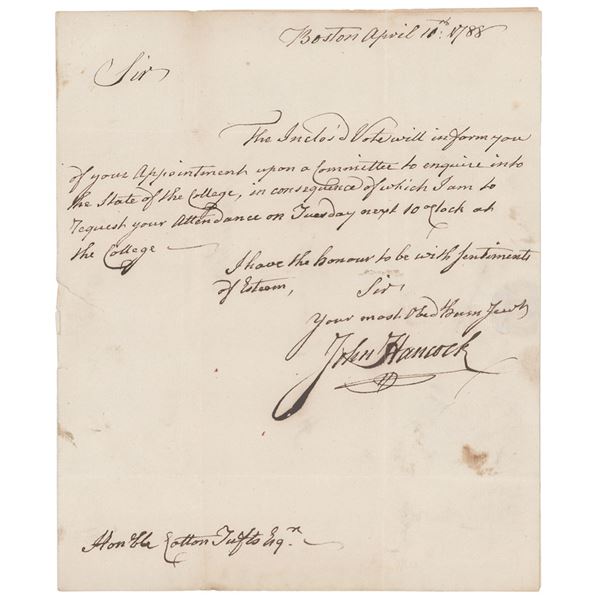 Boston April 10th. 1788
Sir
The Inclos'd Vote will inform you
of your Appointment upon a Committee to enquire into
the State of the College, in consequence of which I am to
request your Attendance on Tuesday next 10 o'Clock at
the College
I have the honour to be with Sentiments
of Esteem, Sir
Your most Obed hum Servt
John Hancock
Honble Cotton Tufts Esqr.